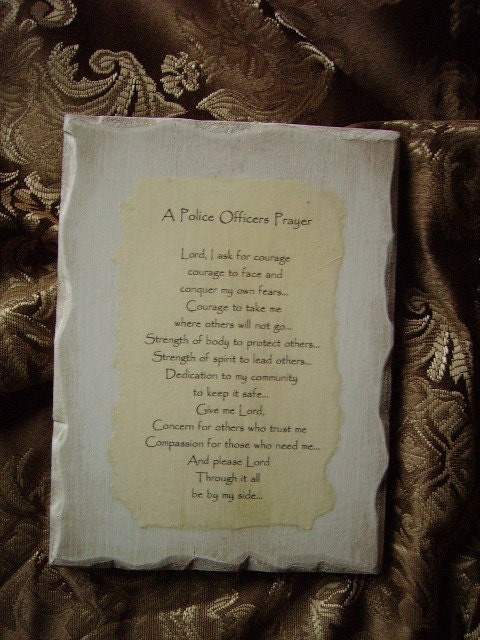 A Police Officers Prayer
Lord, I ask for courage
courage to face and
conquer my own fears...
Courage to take me
where others will not go...
Strength of body to protect others...
Strength of spirit to lead others...
Dedication to my community
to keep it safe...
Give me Lord,
Concern for others who trust me
Compassion for those who need me...
And please Lord
Through it all
be by my side...